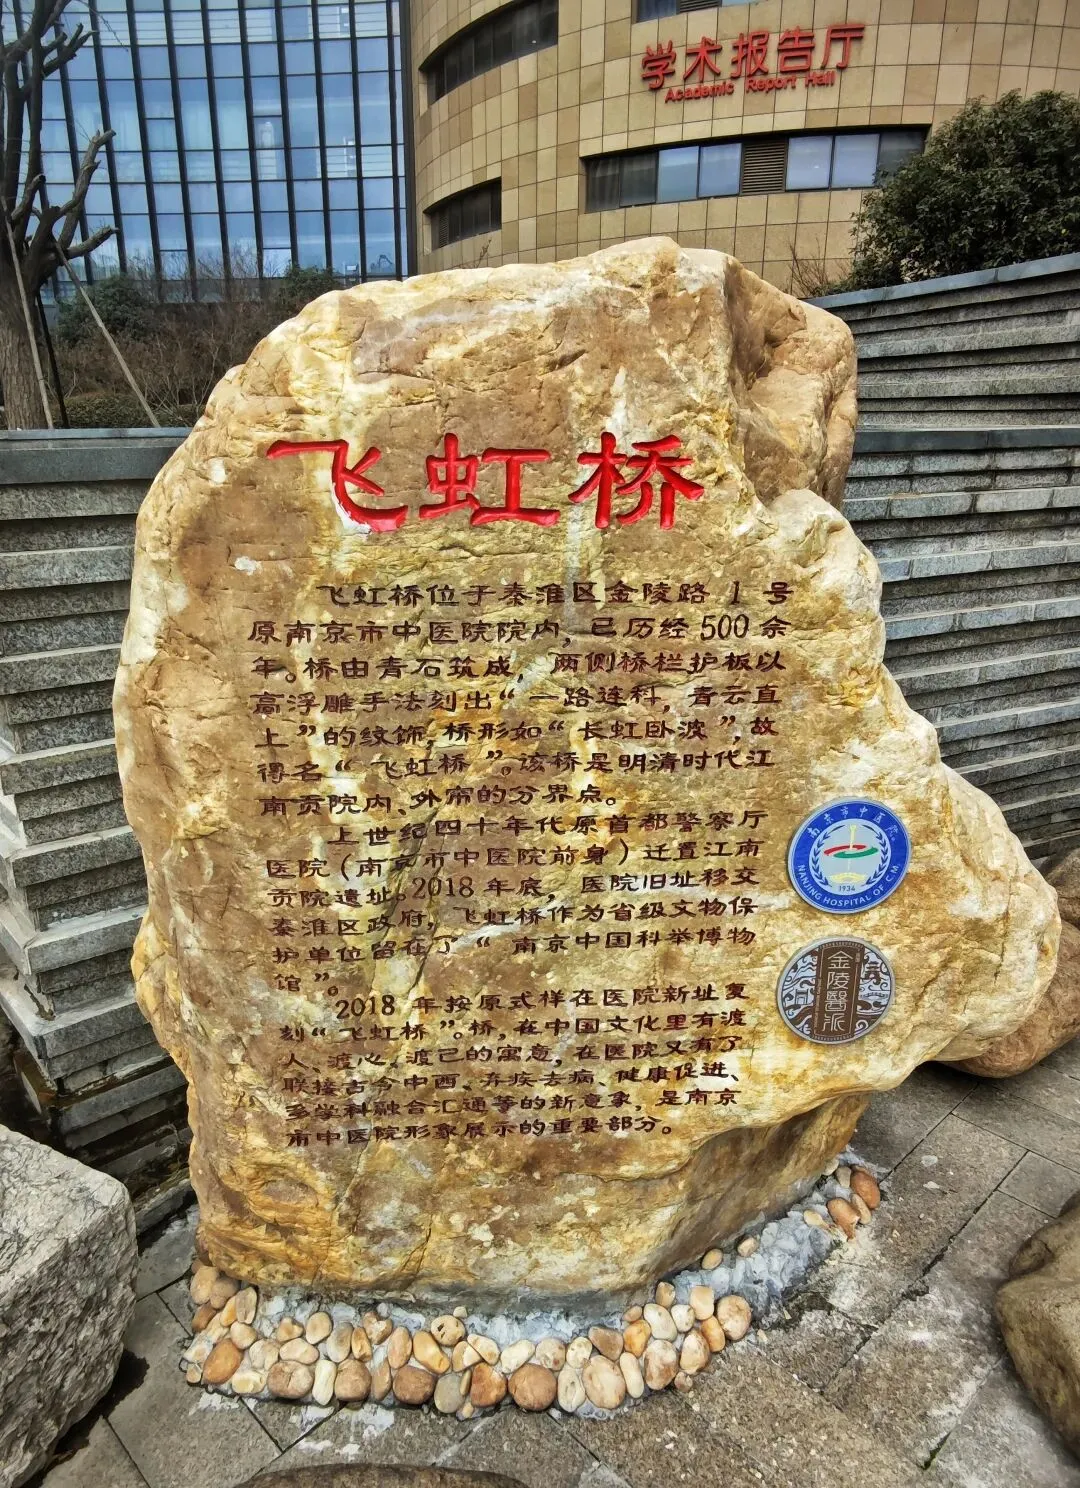 学术报告厅
Academic Report Hall
飞虹桥
飞虹桥位于秦淮区金陵路1号
原南京市中医院院内，已历经500余
年。桥由青石筑成，两侧桥栏护板以
高浮雕手法刻出“一路连科，青云直
上”的纹饰，桥形如“长虹卧波”，故
得名“飞虹桥”。该桥是明清时代江
南贡院内、外帘的分界点。
上世纪四十年代原首都警察厅
医院（南京市中医院前身）迁置江南
贡院遗址。2018年底，医院旧址移交
秦淮区政府，飞虹桥作为省级文物保
护单位留在了“南京中国科举博物
馆”。
2018年按原式样在医院新址复
刻“飞虹桥”。桥，在中国文化里有渡
人、渡心、渡己的寓意，在医院又有了
联接古今中西、弃疾去病、健康促进、
多学科融合汇通等的新意象，是南京
市中医院形象展示的重要部分。
南京市中医院
1934
NANJING HOSPITAL OF C.M.
金陵醫派